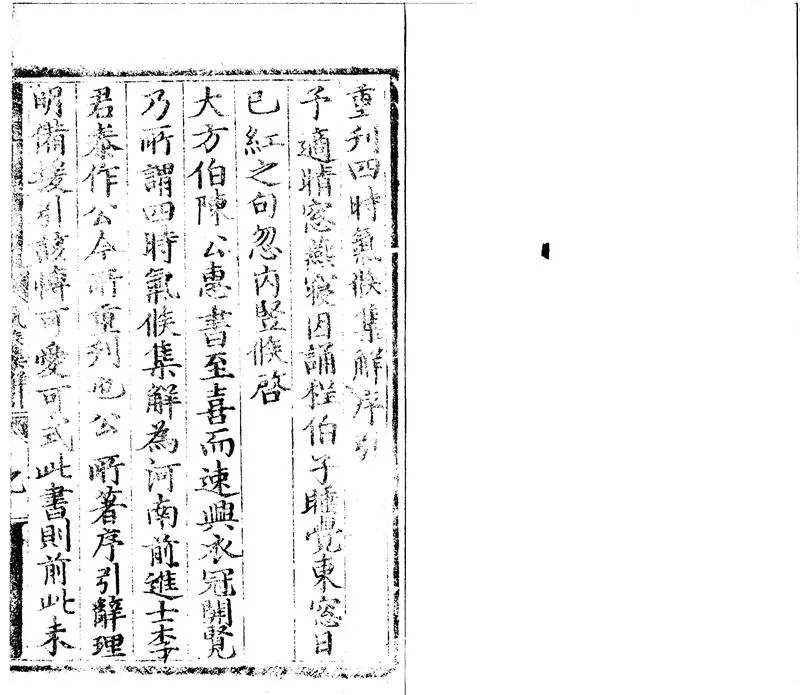 重刋四時氣候集解序引
予適晴窓燕寢因誦程伯子睡覺東窓日
已紅之句忽内竪候啓
大方伯陳公惠書至喜而速興衣冠開覽
乃所謂四時氣候集解為河南前進士李
君泰作公今所重刋也公所著序引辭理
明備援引該博可愛可式此書則前此未
氣候集解